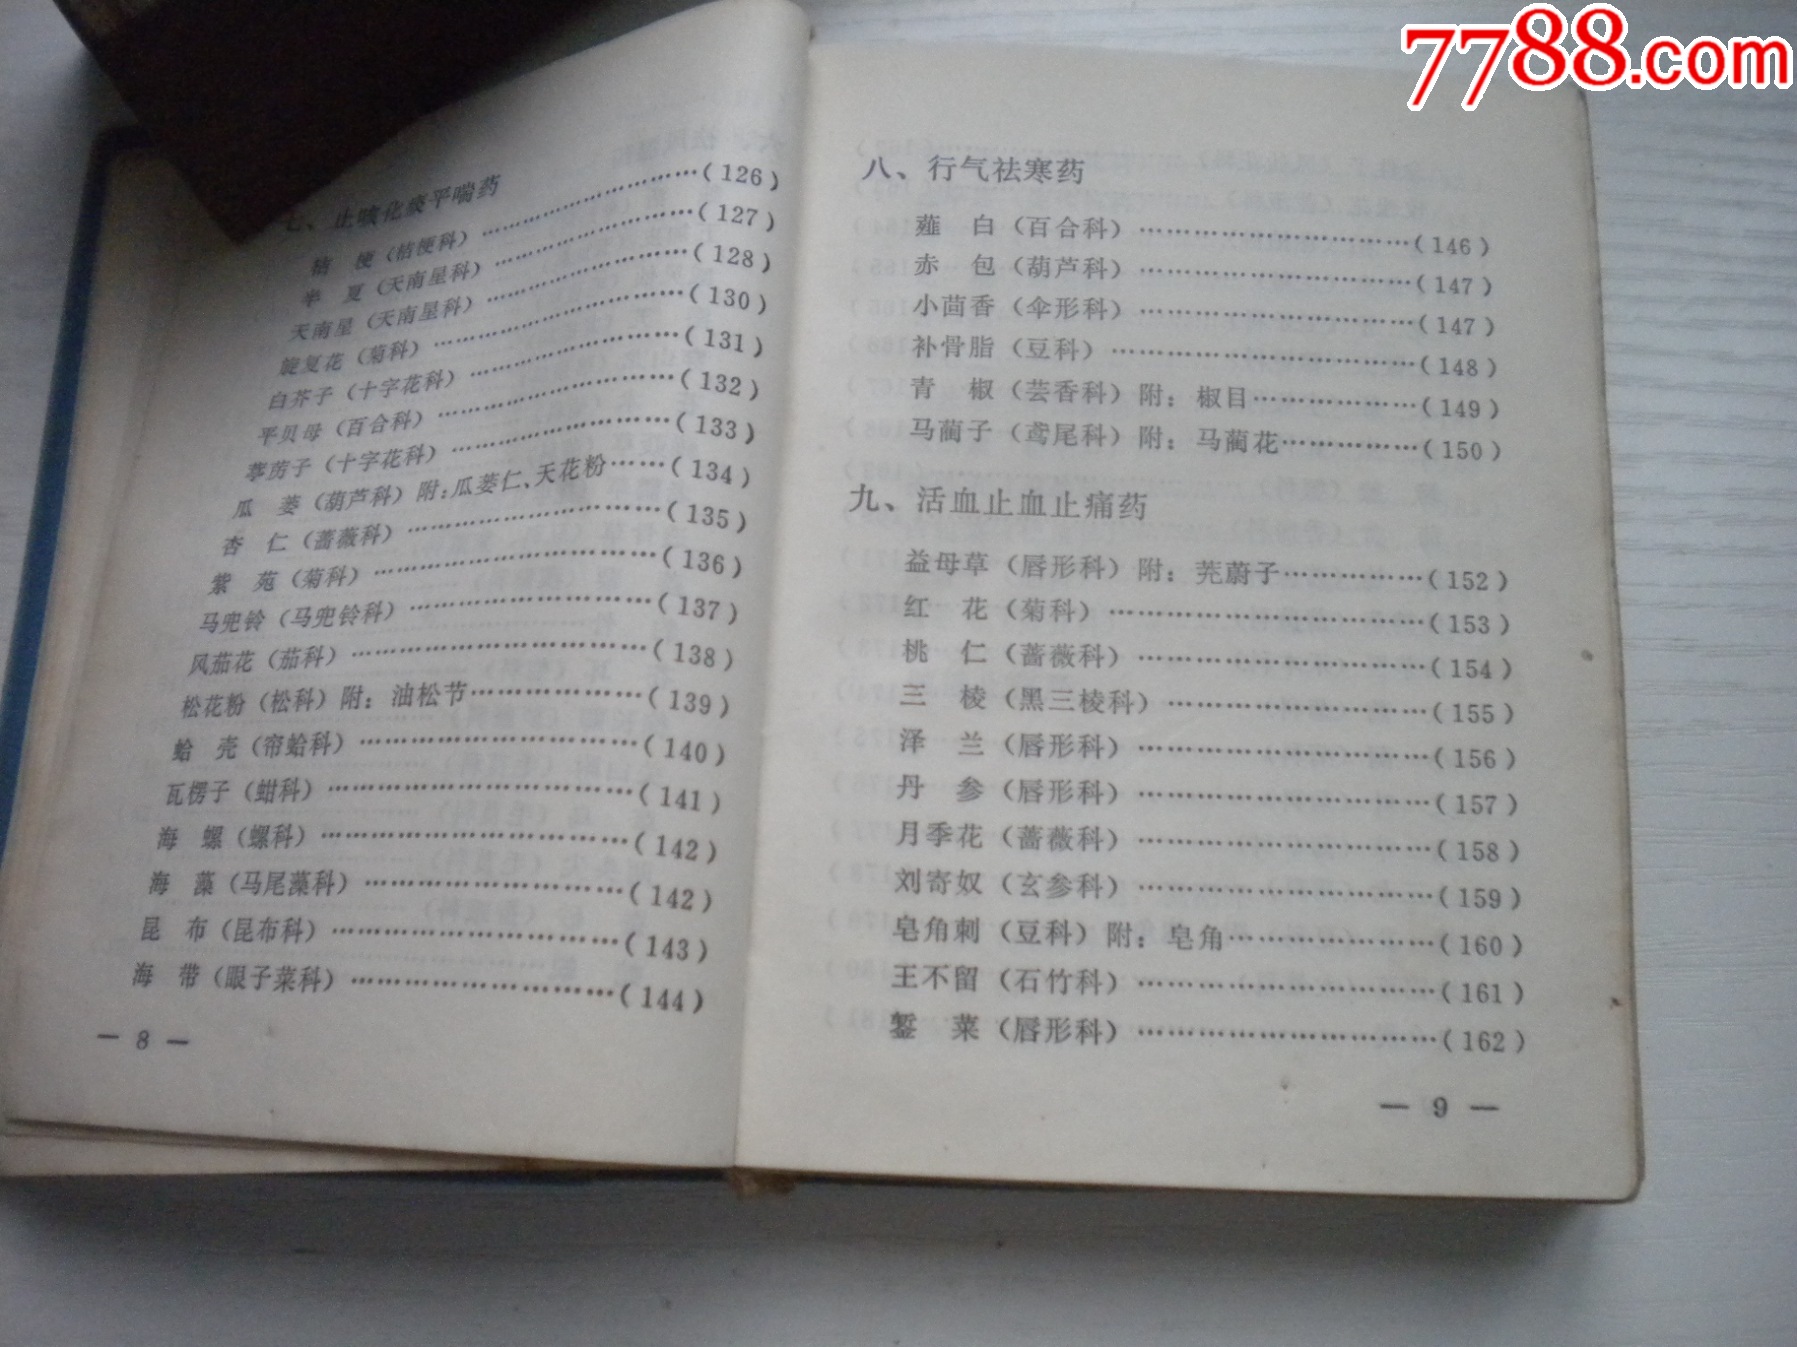 7788.com
七、止咳化痰平喘药
桔　梗（桔梗科）…………………………（126）
半　夏（天南星科）…………………………（127）
天南星（天南星科）…………………………（128）
旋复花（菊科）…………………………（130）
白芥子（十字花科）…………………………（131）
平贝母（百合科）…………………………（132）
葶苈子（十字花科）…………………………（133）
瓜　蒌（葫芦科）附：瓜蒌仁、天花粉……（134）
杏　仁（蔷薇科）…………………………（135）
紫　苑（菊科）…………………………（136）
马兜铃（马兜铃科）…………………………（137）
风茄花（茄科）…………………………（138）
松花粉（松科）附：油松节………………（139）
蛤　壳（帘蛤科）…………………………（140）
瓦楞子（蚶科）…………………………（141）
海　螺（螺科）…………………………（142）
海　藻（马尾藻科）…………………………（142）
昆　布（昆布科）…………………………（143）
海　带（眼子菜科）…………………………（144）
— 8 —
八、行气祛寒药
薤　白（百合科）…………………………（146）
赤　包（葫芦科）…………………………（147）
小茴香（伞形科）…………………………（147）
补骨脂（豆科）…………………………（148）
青　椒（芸香科）附：椒目………………（149）
马蔺子（鸢尾科）附：马蔺花……………（150）
九、活血止血止痛药
益母草（唇形科）附：茺蔚子……………（152）
红　花（菊科）…………………………（153）
桃　仁（蔷薇科）…………………………（154）
三　棱（黑三棱科）…………………………（155）
泽　兰（唇形科）…………………………（156）
丹　参（唇形科）…………………………（157）
月季花（蔷薇科）…………………………（158）
刘寄奴（玄参科）…………………………（159）
皂角刺（豆科）附：皂角…………………（160）
王不留（石竹科）…………………………（161）
錾　菜（唇形科）…………………………（162）
— 9 —